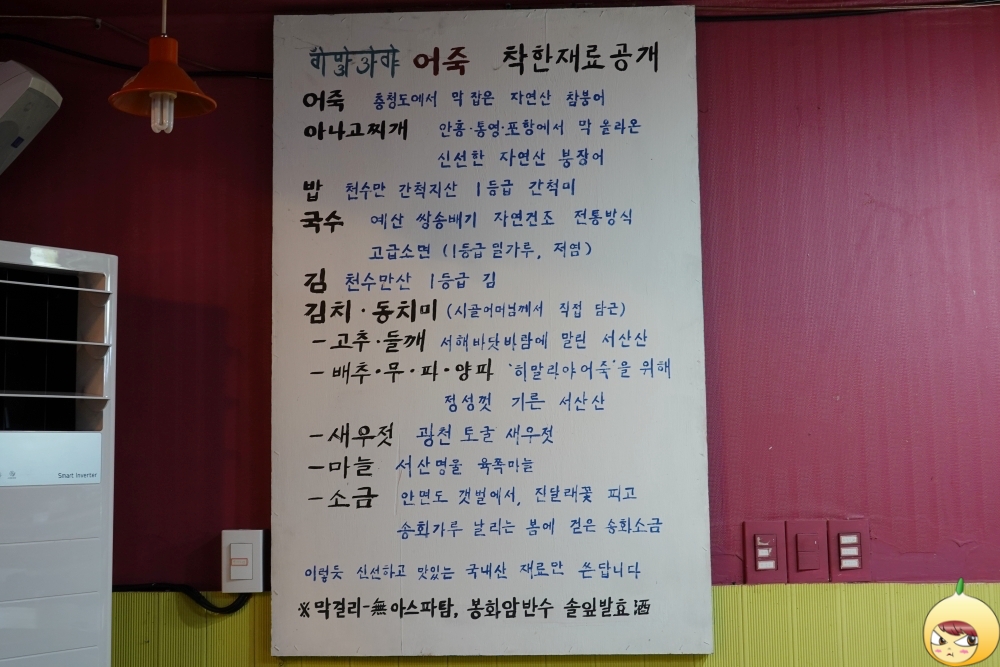 히말라야 어죽 착한재료공개
어죽 충청도에서 막 잡은 자연산 참붕어
아나고찌개 안흥·통영·포항에서 막 올라온
신선한 자연산 붕장어
밥 천수만 간척지산 1등급 간척미
국수 예산 쌍송배기 자연건조 전통방식
고급소면 (1등급 밀가루, 저염)
김 천수만산 1등급 김
김치·동치미 (시골어머님께서 직접 담근)
-고추·들깨 서해바닷바람에 말린 서산산
-배추·무·파·양파 '히말라야어죽'을 위해
정성껏 기른 서산산
-새우젓 광천 토굴 새우젓
-마늘 서산명물 육쪽마늘
-소금 안면도 갯벌에서, 진달래꽃 피고
송화가루 날리는 봄에 걷은 송화소금
이렇듯 신선하고 맛있는 국내산 재료만 쓴답니다
※막걸리-無아스파탐, 봉화암반수 솔잎발효酒
Smart Inverter